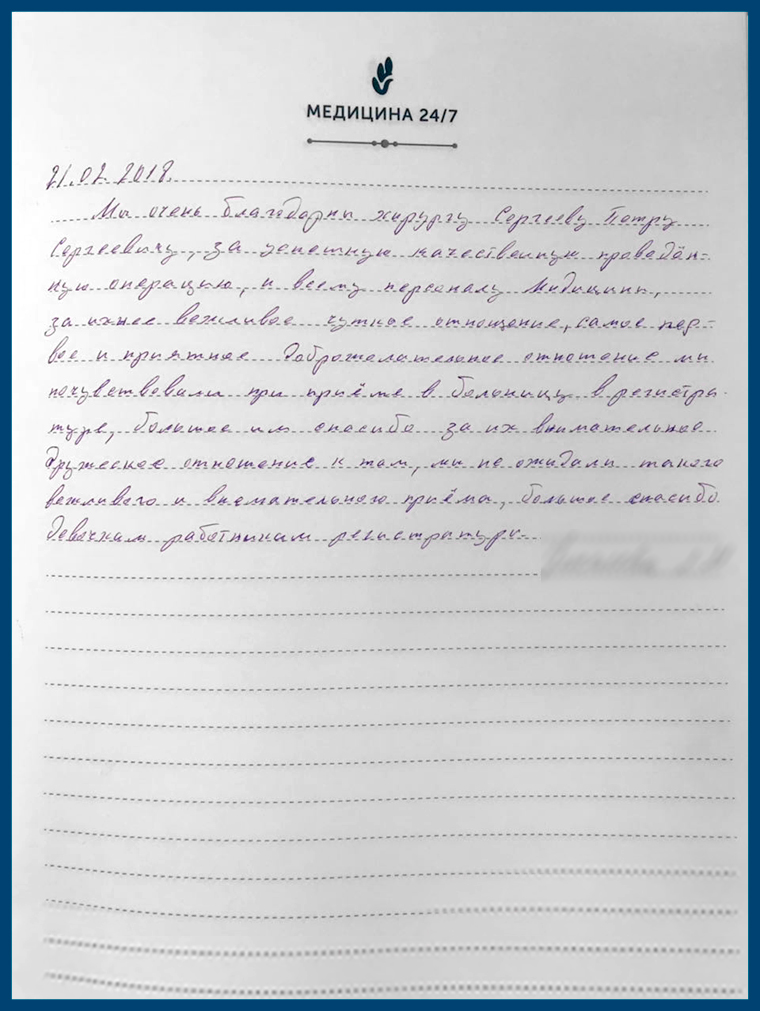 МЕДИЦИНА 24/7
21.02.2018.
Мы очень благодарны хирургу Сергееву Петру
Сергеевичу, за успешную качественную проведён-
ную операцию, и всему персоналу Медицины,
за ихнее вежливое чуткое отношение, самое пер-
вое и приятное доброжелательное отношение мы
почувствовали при приёме в больницу в регистра-
туре, большое им спасибо за их внимательное
дружеское отношение к нам, мы не ожидали такого
вежливого и внимательного приёма, большое спасибо
девочкам работникам регистратуры.